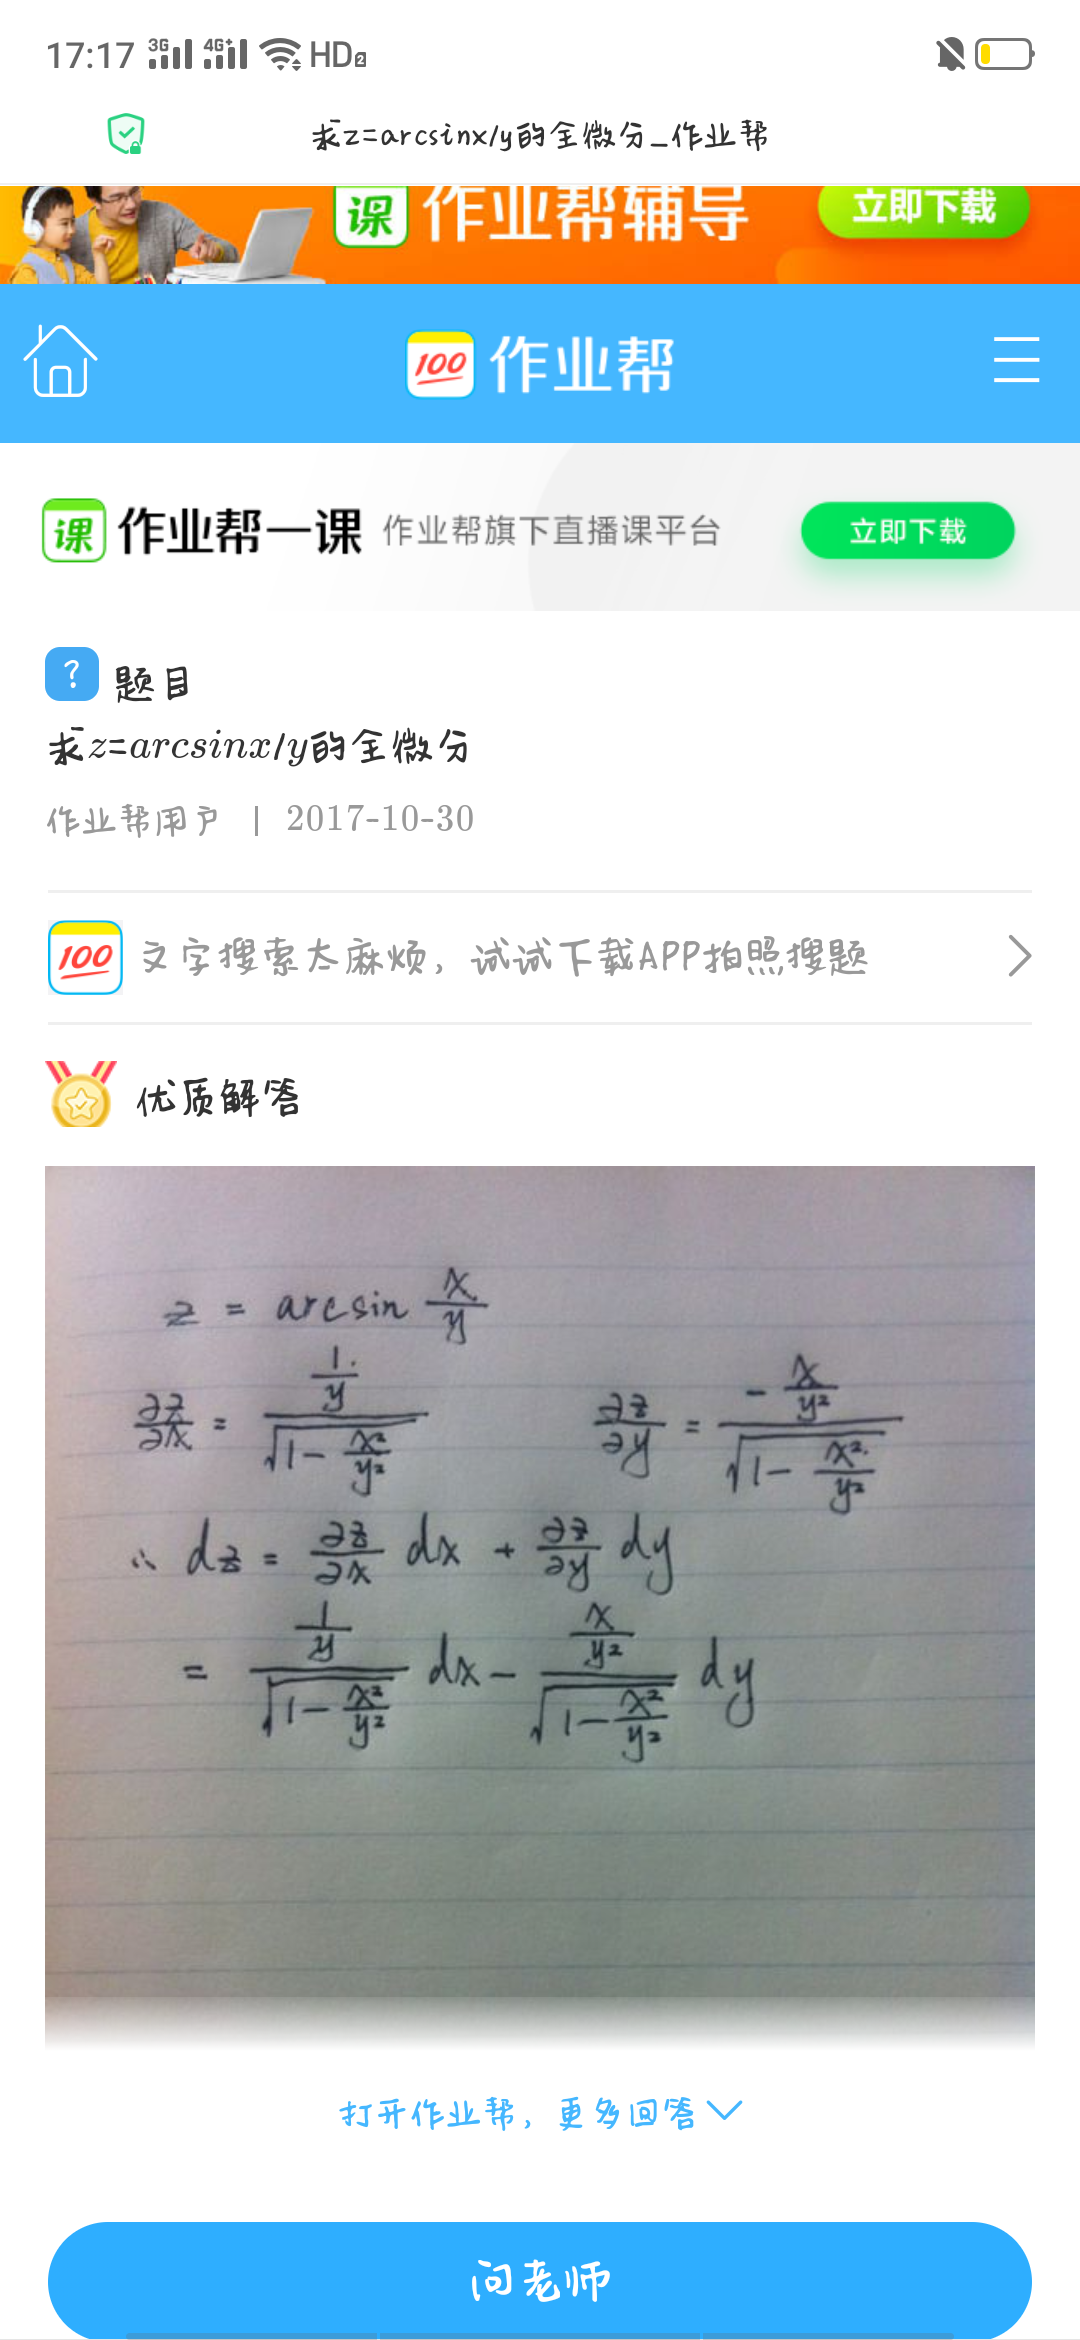 17:17 3G 4G+ HD2
求z=arcsinx/y的全微分_作业帮
课 作业帮辅导 立即下载
100 作业帮
课 作业帮一课 作业帮旗下直播课平台 立即下载
? 题目
求z=arcsinx/y的全微分
作业帮用户 | 2017-10-30
100 文字搜索太麻烦，试试下载APP拍照搜题
优质解答
z = arcsin x/y
∂z/∂x = (1/y)/√(1-x²/y²) ∂z/∂y = (-x/y²)/√(1-x²/y²)
∴ dz = ∂z/∂x dx + ∂z/∂y dy
= (1/y)/√(1-x²/y²) dx - (x/y²)/√(1-x²/y²) dy
打开作业帮，更多回答
问老师